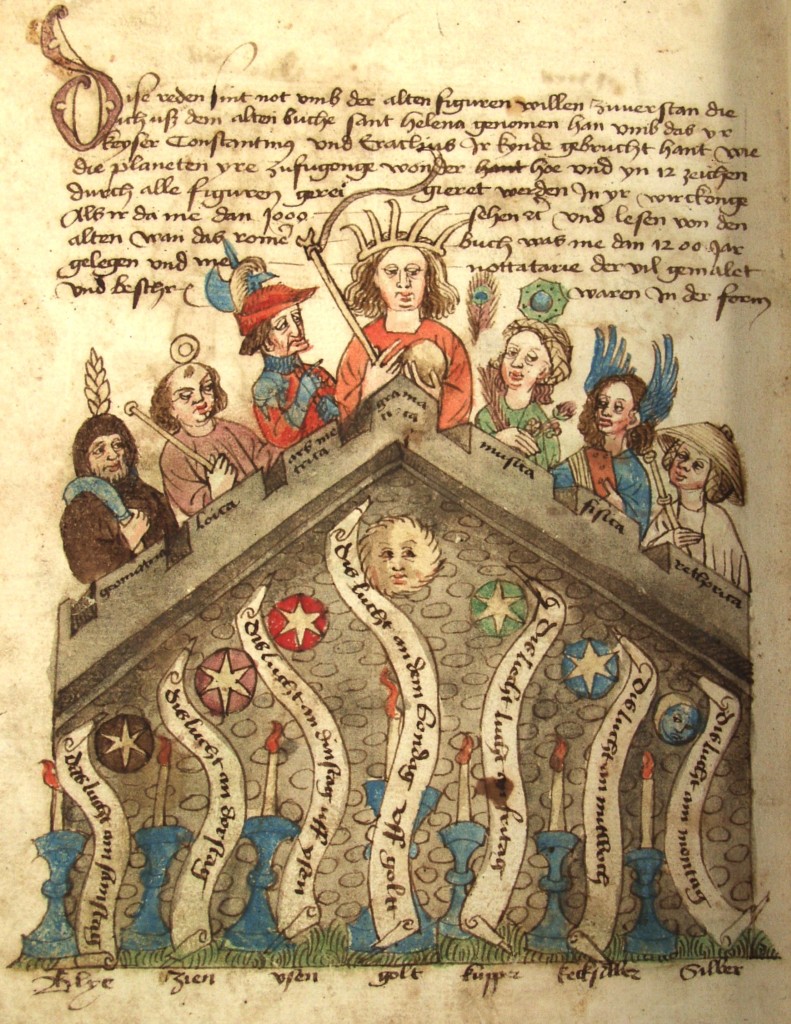 Dise reden sint not vmb der alten figuren willen zuuerstan die
ich uß dem alten buche sant helena genomen han vmb das yr
keyser Constantinus vnd Eraclius Ir kynde gebrucht hant wie
die planeten yre zufugonge wonder hant hoe vnd yn 12 zeichen
durch alle figuren gerei gieret werden In yr wirckonge
Als ir da me dan 1000 sehen vnd lesen von den
alten wan das rome buch was me dan 1200 Jar
gelegen vnd we nottatarie der vil gemalet
vnd beschr waren In der form
grama
tica
aris me
trica
musica
loica
fisica
geometria
rethorica
das lucht am samstag
dis lucht an dorstag
dis lucht an dinstag vff ysen
dis lucht an dem sondag vff golt
Die lucht fritag
Die lucht an mitwoch
Die lucht am montag
Blye zien ysen golt kupper kecksilber Silber